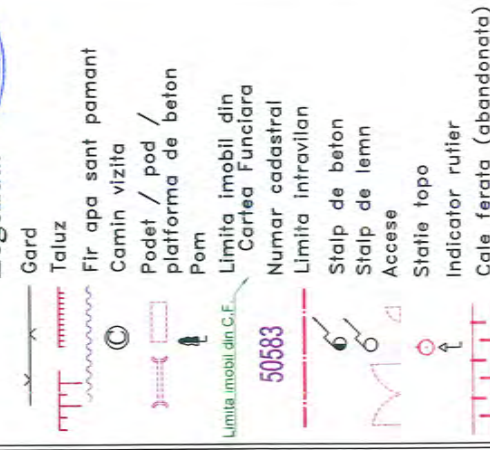 Gard
Taluz
Fir apa sant pamant
Camin vizita
©
Podet / pod /
platforma de beton
Pom
Limita imobil din C.F.
Limita imobil din
Cartea Funciara
50583
Numar cadastral
Limita intravilan
Stalp de beton
Stalp de lemn
Accese
Statie topo
Indicator rutier
Cale ferata (abandonata)